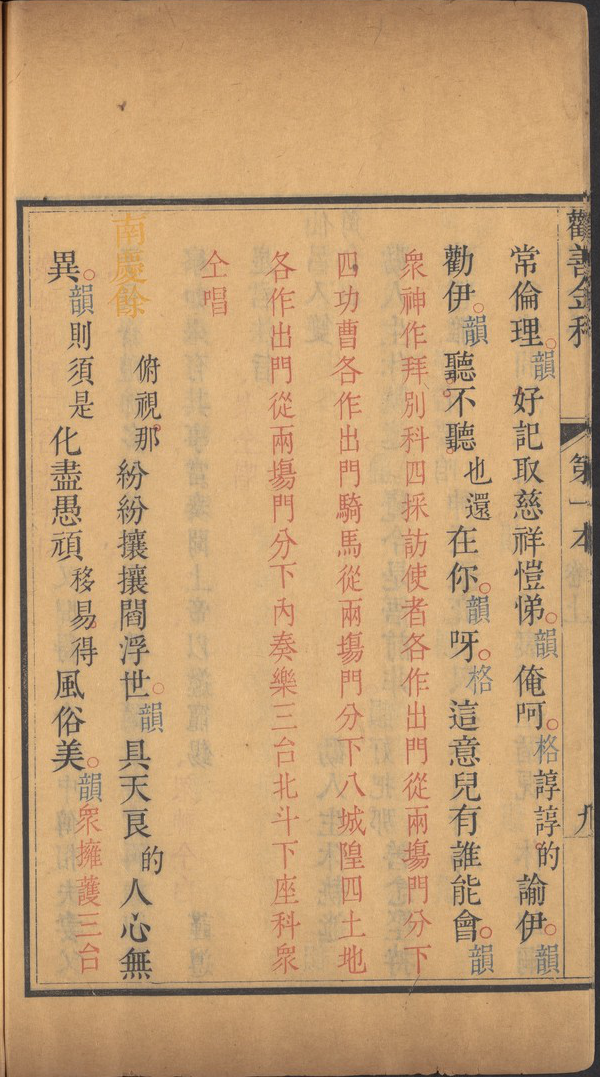 勸善金科 第一本 九
常倫理韻好記取慈祥愷悌韻俺呵格諄諄的諭伊韻
勸伊韻聽不聽也還在你韻呀格這意兒有誰能會韻
衆神作拜別科四採訪使者各作出門從兩塲門分下
四功曹各作出門騎馬從兩塲門分下八城隍四土地
各作出門從兩塲門分下內奏樂三台北斗下座科衆
仝唱
南慶餘 俯視那紛紛攘攘閻浮世韻具天良的人心無
異韻則須是化盡愚頑移易得風俗美韻衆擁護三台